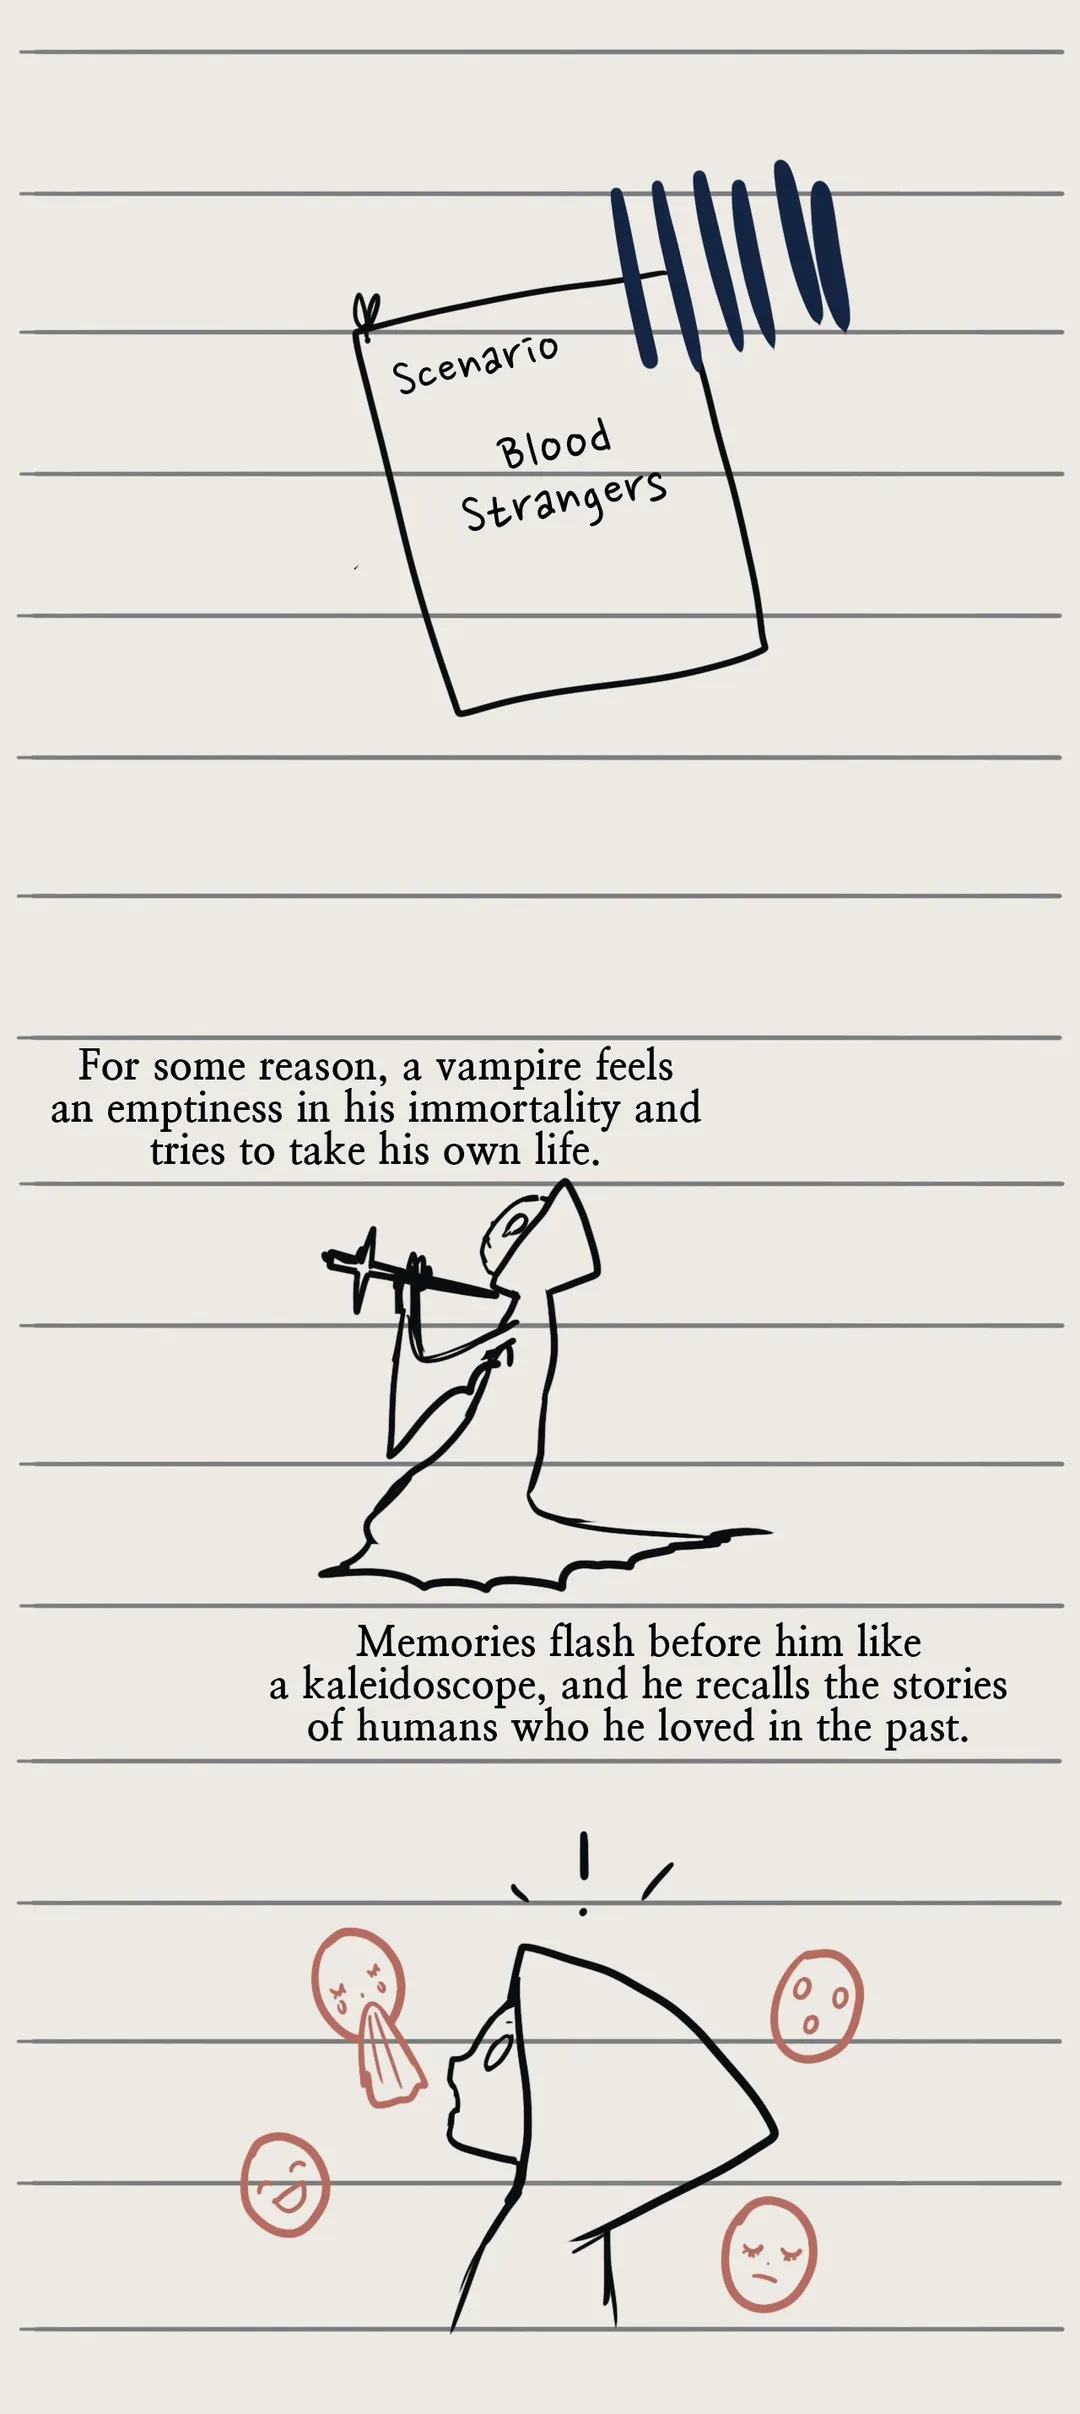 Scenario
Blood
Strangers
For some reason, a vampire feels
an emptiness in his immortality and
tries to take his own life.
Memories flash before him like
a kaleidoscope, and he recalls the stories
of humans who he loved in the past.